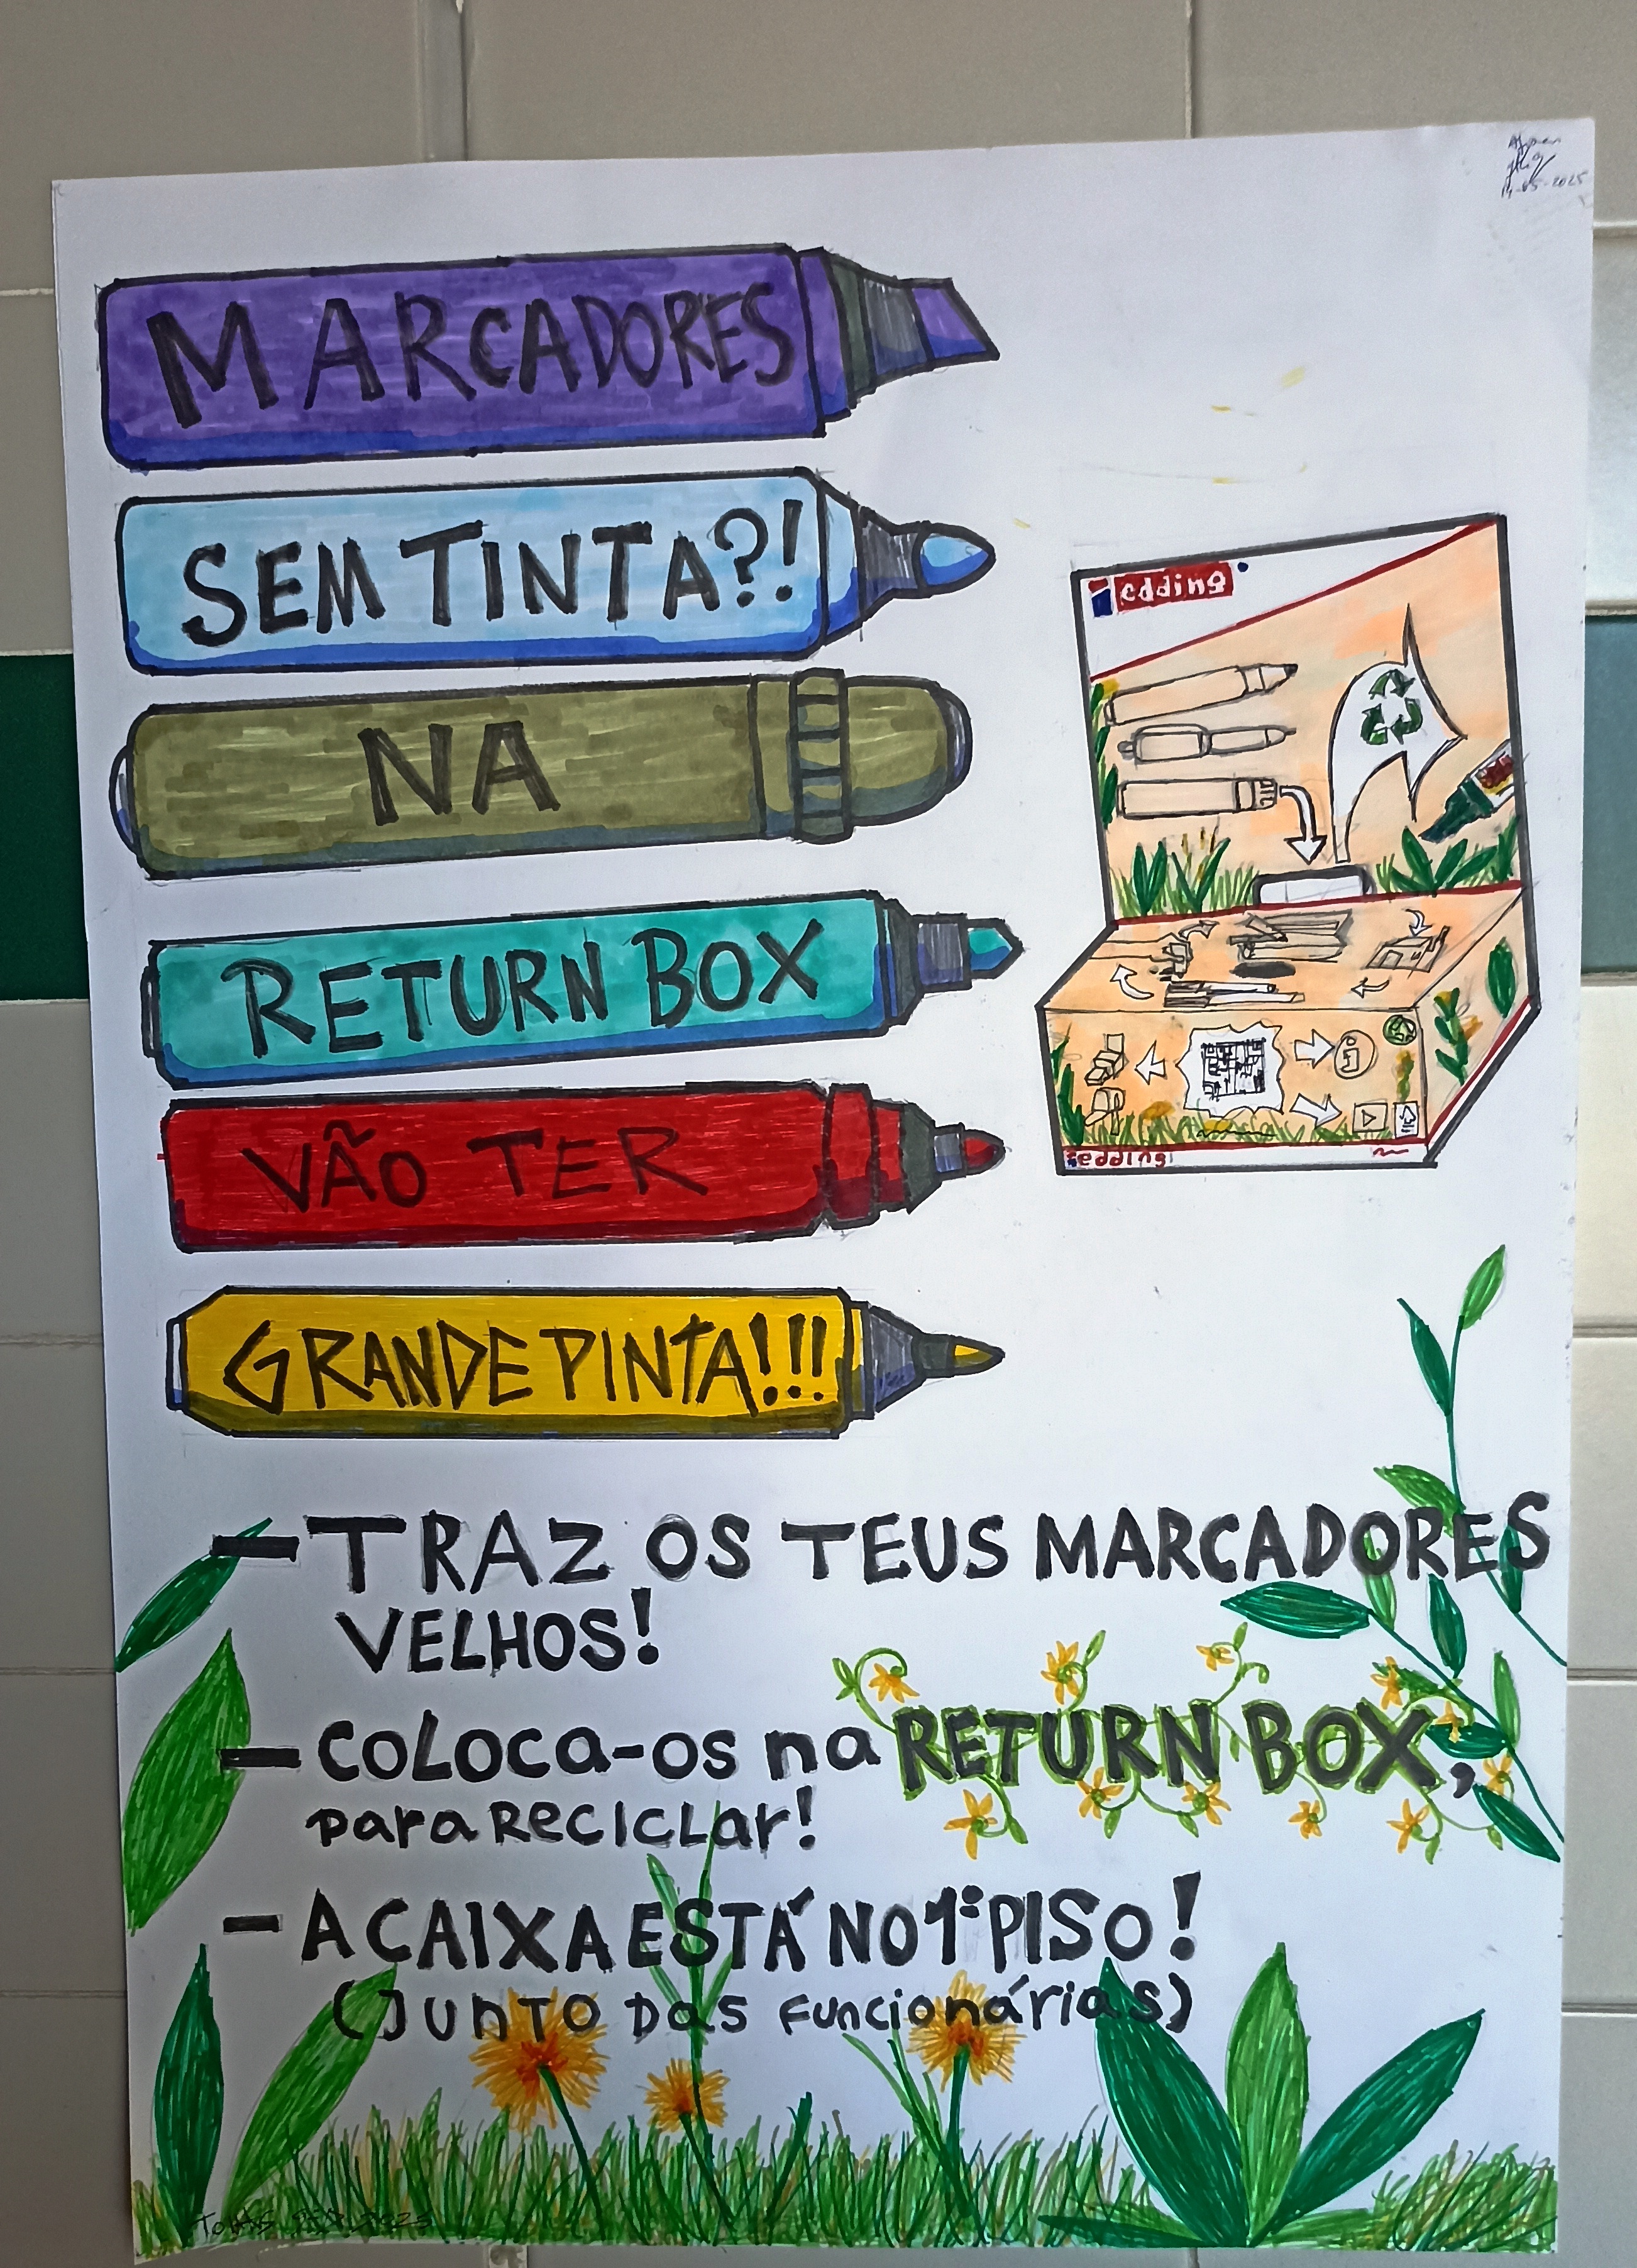 14-05-2025
MARCADORES
SEM TINTA?!
NA
RETURN BOX
VÃO TER
GRANDE PINTA!!!
edding
edding
- TRAZ OS TEUS MARCADORES
VELHOS!
- COLOCA-OS na RETURN BOX,
para RECICLAR!
- A CAIXA ESTÁ NO 1º PISO!
(JUNTO DAS FUNCIONÁRIAS)
2025